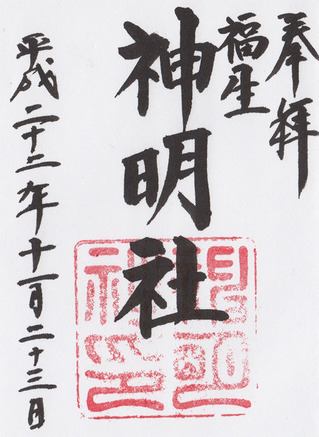 奉拝
福生
神明社
平成二十二年十一月二十三日